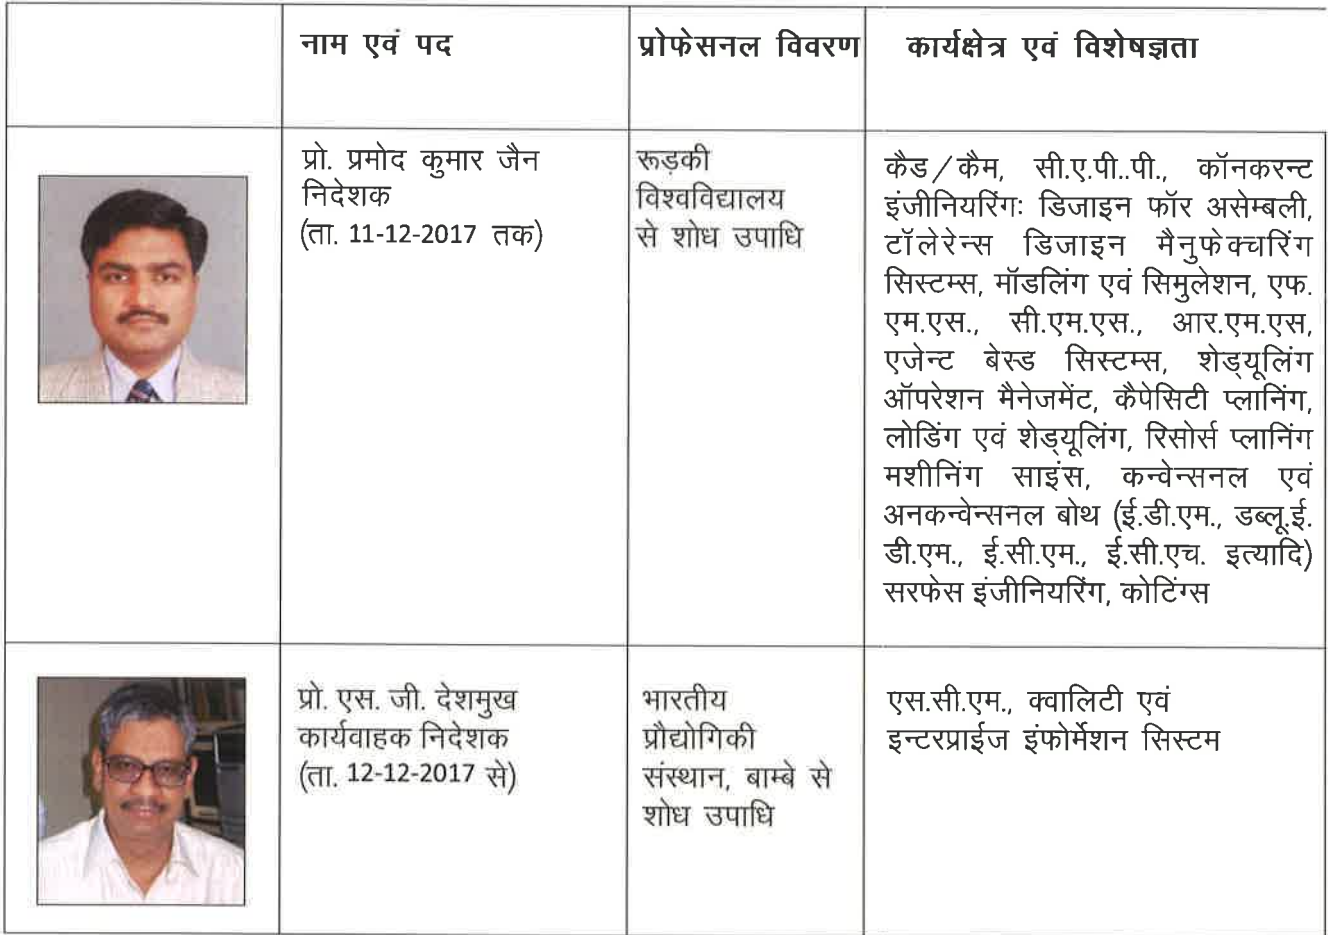 नाम एवं पद
प्रोफेसनल विवरण
कार्यक्षेत्र एवं विशेषज्ञता
प्रो. प्रमोद कुमार जैन
निदेशक
(ता. 11-12-2017 तक)
रूड़की
विश्वविद्यालय
से शोध उपाधि
कैड/कैम, सी.ए.पी..पी., कॉनकरन्ट
इंजीनियरिंगः डिजाइन फॉर असेम्बली,
टॉलेरेन्स डिजाइन मैनुफेक्चरिंग
सिस्टम्स, मॉडलिंग एवं सिमुलेशन, एफ.
एम.एस., सी.एम.एस., आर.एम.एस,
एजेन्ट बेस्ड सिस्टम्स, शेड्यूलिंग
ऑपरेशन मैनेजमेंट, कैपेसिटी प्लानिंग,
लोडिंग एवं शेड्यूलिंग, रिसोर्स प्लानिंग
मशीनिंग साइंस, कन्वेन्सनल एवं
अनकन्वेन्सनल बोथ (ई.डी.एम., डब्लू.ई.
डी.एम., ई.सी.एम., ई.सी.एच. इत्यादि)
सरफेस इंजीनियरिंग, कोटिंग्स
प्रो. एस. जी. देशमुख
कार्यवाहक निदेशक
(ता. 12-12-2017 से)
भारतीय
प्रौद्योगिकी
संस्थान, बाम्बे से
शोध उपाधि
एस.सी.एम., क्वालिटी एवं
इन्टरप्राईज इंफोर्मेशन सिस्टम